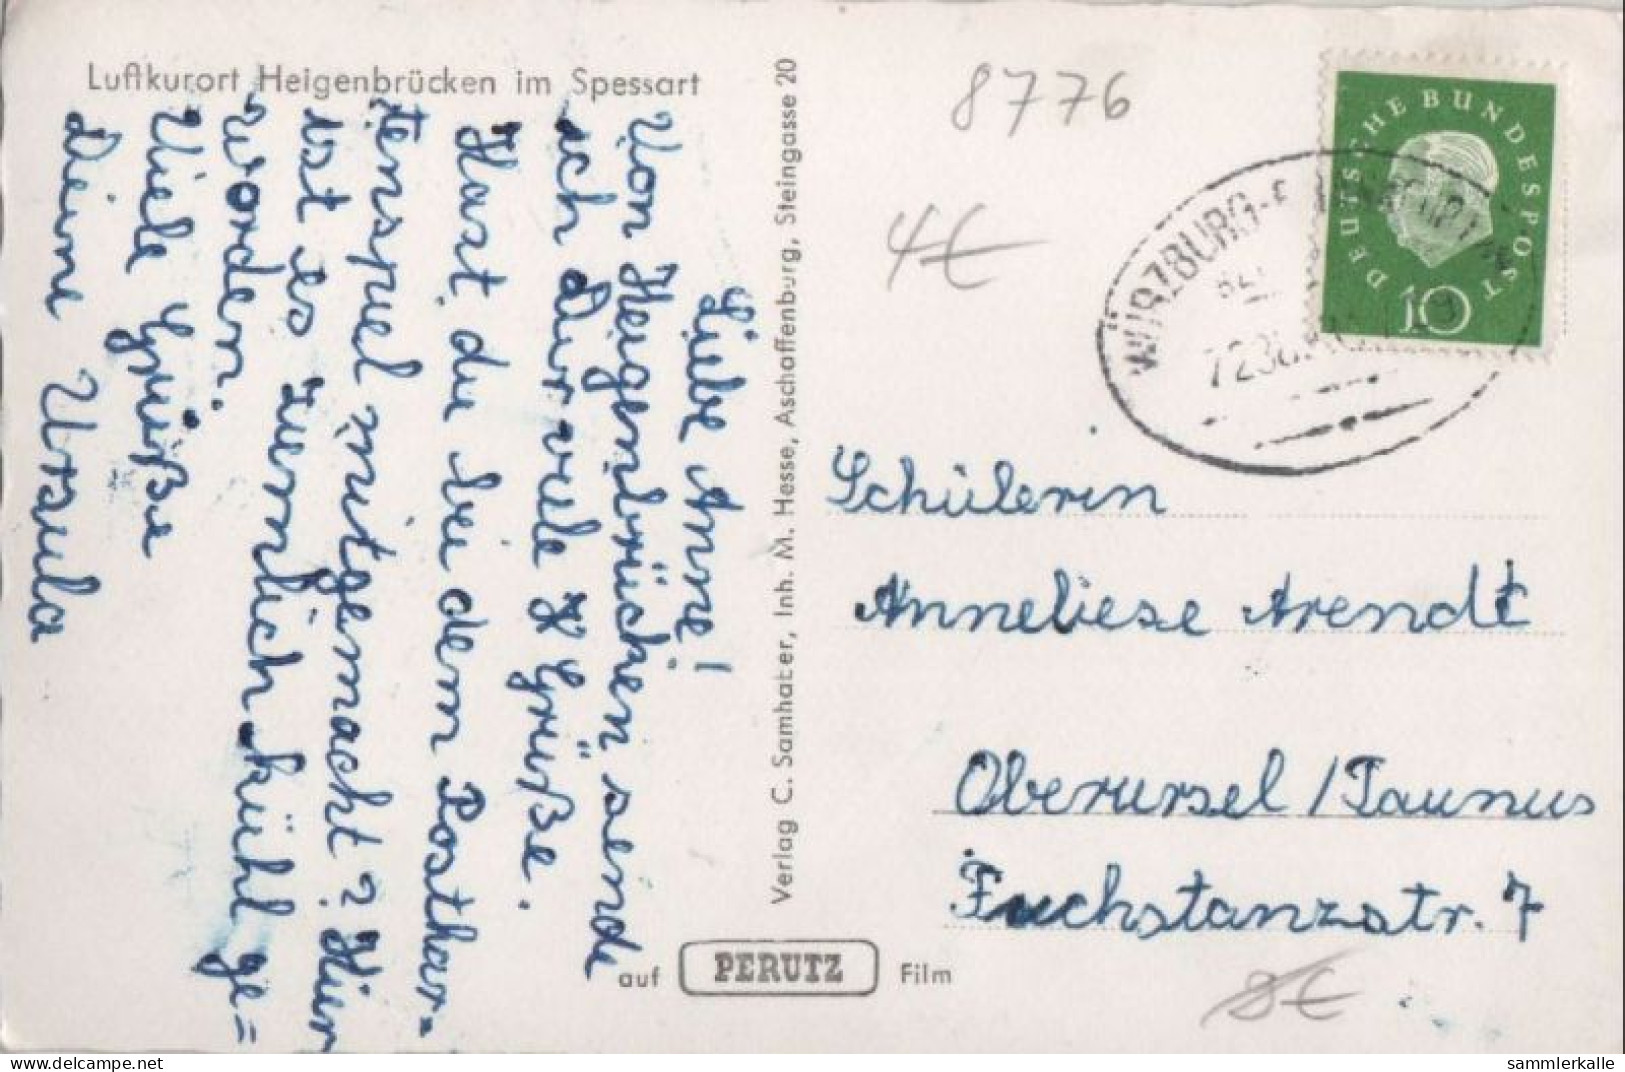 Luftkurort Heigenbrücken im Spessart
Liebe Anne!
Von Heigenbrücken sende
ich Dir viele H Grüße.
Hast du bei dem Postkar=
tenspiel mitgemacht? Hier
ist es ziemlich kühl ge=
worden.
Viele Grüße
Deine Ursula
Verlag C. Samhaber, Inh. M. Hesse, Aschaffenburg, Steingasse 20
auf PERUTZ Film
8776
4€
DEUTSCHE BUNDESPOST
10
WÜRZBURG-
Schülerin
Anneliese Arendt
Oberursel / Taunus
Fuchstanzstr. 7
8€
www.delcampe.net
sammlerkalle